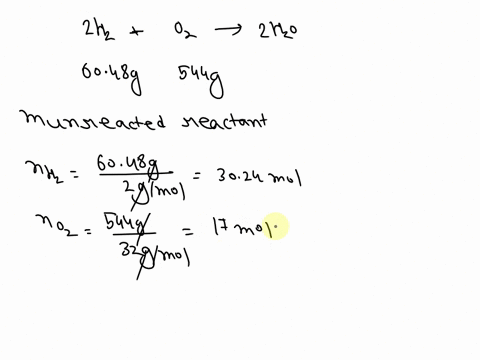 2H₂ + O₂ → 2H₂O
60.48g 544g
munreacted reactant
nH₂ = 60.48g / 2g/mol = 30.24 mol
nO₂ = 544g / 32g/mol = 17 mol